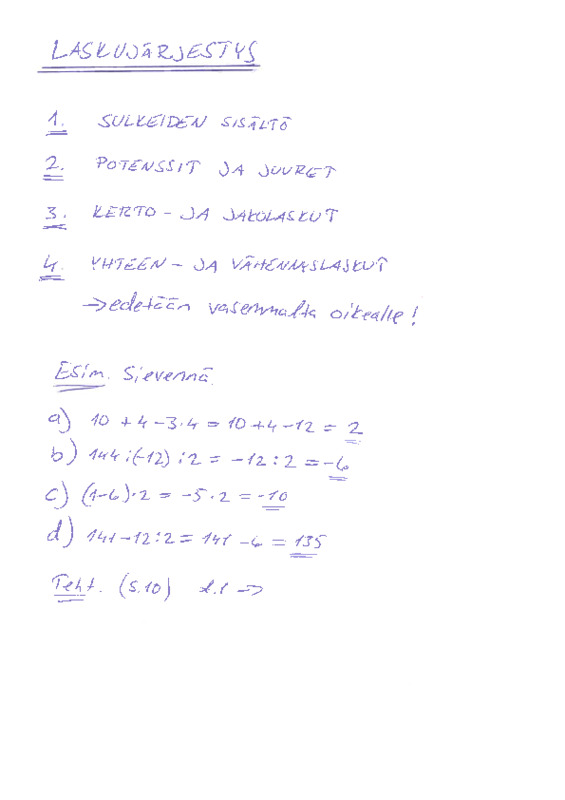 LASKUJÄRJESTYS
1. SULKEIDEN SISÄLTÖ
2. POTENSSIT JA JUURET
3. KERTO- JA JAKOLASKUT
4. YHTEEN- JA VÄHENNYSLASKUT
→ edetään vasemmalta oikealle!
Esim. Sievennä.
a) 10 + 4 - 3·4 = 10 + 4 - 12 = 2
b) 144 : (-12) : 2 = -12 : 2 = -6
c) (1-6)·2 = -5·2 = -10
d) 141 - 12:2 = 141 - 6 = 135
Teht. (s.10) 2.1 →